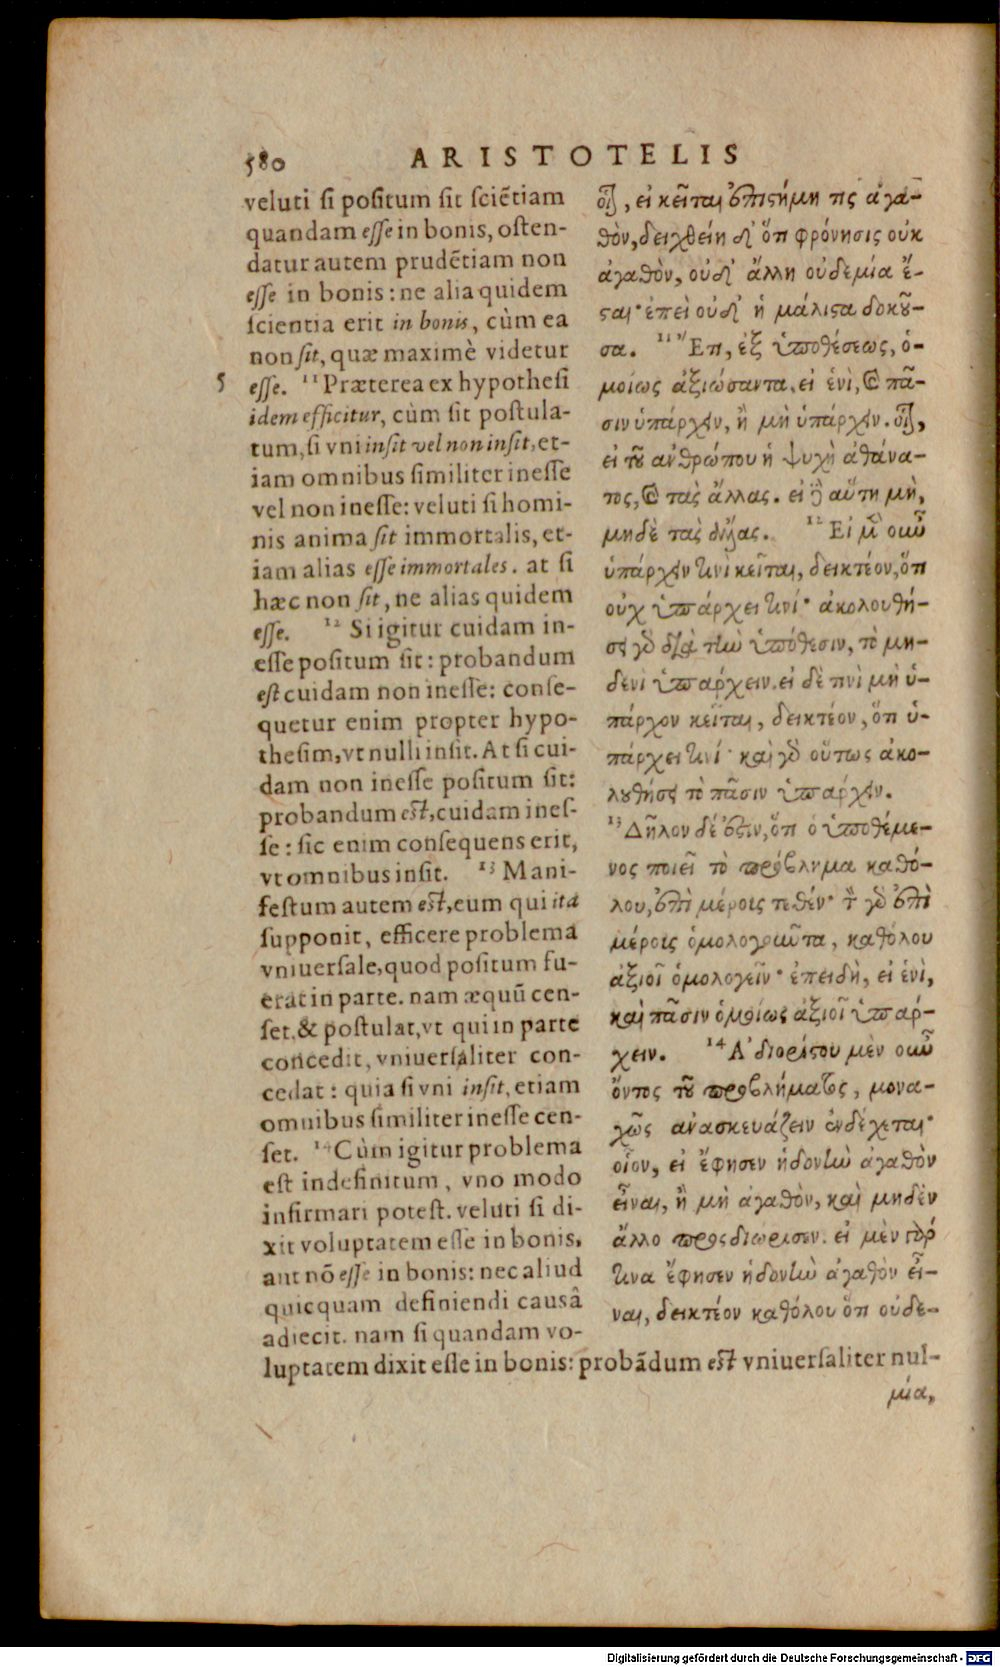 580 ARISTOTELIS
veluti si positum sit sciẽtiam
quandam esse in bonis, osten-
datur autem prudẽtiam non
esse in bonis: ne alia quidem
scientia erit in bonis, cùm ea
non sit, quæ maximè videtur
5 esse. 11 Præterea ex hypothesi
idem efficitur, cùm sit postula-
tum, si vni insit vel non insit, et-
iam omnibus similiter inesse
vel non inesse: veluti si homi-
nis anima sit immortalis, et-
iam alias esse immortales. at si
hæc non sit, ne alias quidem
esse. 12 Si igitur cuidam in-
esse positum sit: probandum
est cuidam non inesse: conse-
quetur enim propter hypo-
thesim, vt nulli insit. At si cui-
dam non inesse positum sit:
probandum est, cuidam ines-
se: sic enim consequens erit,
vt omnibus insit. 13 Mani-
festum autem est, eum qui ita
supponit, efficere problema
vniuersale, quod positum fu-
erat in parte. nam æquũ cen-
set, & postulat, vt qui in parte
concedit, vniuersaliter con-
cedat: quia si vni insit, etiam
omnibus similiter inesse cen-
set. 14 Cùm igitur problema
est indefinitum, vno modo
infirmari potest. veluti si di-
xit voluptatem esse in bonis,
aut nõ esse in bonis: nec aliud
quicquam definiendi causâ
adiecit. nam si quandam vo-
luptatem dixit esse in bonis: probãdum est vniuersaliter nul-
οἷον, εἰ κεῖται ἐπιστήμη τις ἀγα-
θὸν, δειχθείη δ' ὅτι φρόνησις οὐκ
ἀγαθὸν, οὐδ' ἄλλη οὐδεμία ἔ-
σται· ἐπεὶ οὐδ' ἡ μάλιστα δοκοῦ-
σα. 11 Ἔτι, ἐξ ὑποθέσεως, ὁ-
μοίως ἀξιώσαντα, εἰ ἑνὶ, καὶ πᾶ-
σιν ὑπάρχειν, ἢ μὴ ὑπάρχειν. οἷον,
εἰ τοῦ ἀνθρώπου ἡ ψυχὴ ἀθάνα-
τος, καὶ τὰς ἄλλας. εἰ δὲ αὕτη μὴ,
μηδὲ τὰς ἄλλας. 12 Εἰ μὲν οὖν
ὑπάρχειν τινὶ κεῖται, δεικτέον, ὅτι
οὐχ ὑπάρχει τινί· ἀκολουθή-
σει γὸ διὰ τὴν ὑπόθεσιν, τὸ μη-
δενὶ ὑπάρχειν. εἰ δὲ τινὶ μὴ ὑ-
πάρχον κεῖται, δεικτέον, ὅτι ὑ-
πάρχει τινί· καὶ γὸ οὕτως ἀκο-
λουθήσει τὸ πᾶσιν ὑπάρχειν.
13 Δῆλον δέ ἐστιν, ὅτι ὁ ὑποθέμε-
νος ποιεῖ τὸ πρόβλημα καθό-
λου, ἐπὶ μέροις τεθέν· τὸν γὸ ἐπὶ
μέροις ὁμολογοῦντα, καθόλου
ἀξιοῖ ὁμολογεῖν· ἐπειδὴ, εἰ ἑνὶ,
καὶ πᾶσιν ὁμοίως ἀξιοῖ ὑπάρ-
χειν. 14 Ἀδιορίστου μὲν οὖν
ὄντος τοῦ προβλήματος, μονα-
χῶς ἀνασκευάζειν ἐνδέχεται·
οἷον, εἰ ἔφησεν ἡδονὴν ἀγαθὸν
εἶναι, ἢ μὴ ἀγαθὸν, καὶ μηδὲν
ἄλλο προσδιώρισεν. εἰ μὲν γάρ
τινα ἔφησεν ἡδονὴν ἀγαθὸν εἶ-
ναι, δεικτέον καθόλου ὅτι οὐδε-
μία,
Digitalisierung gefördert durch die Deutsche Forschungsgemeinschaft - DFG